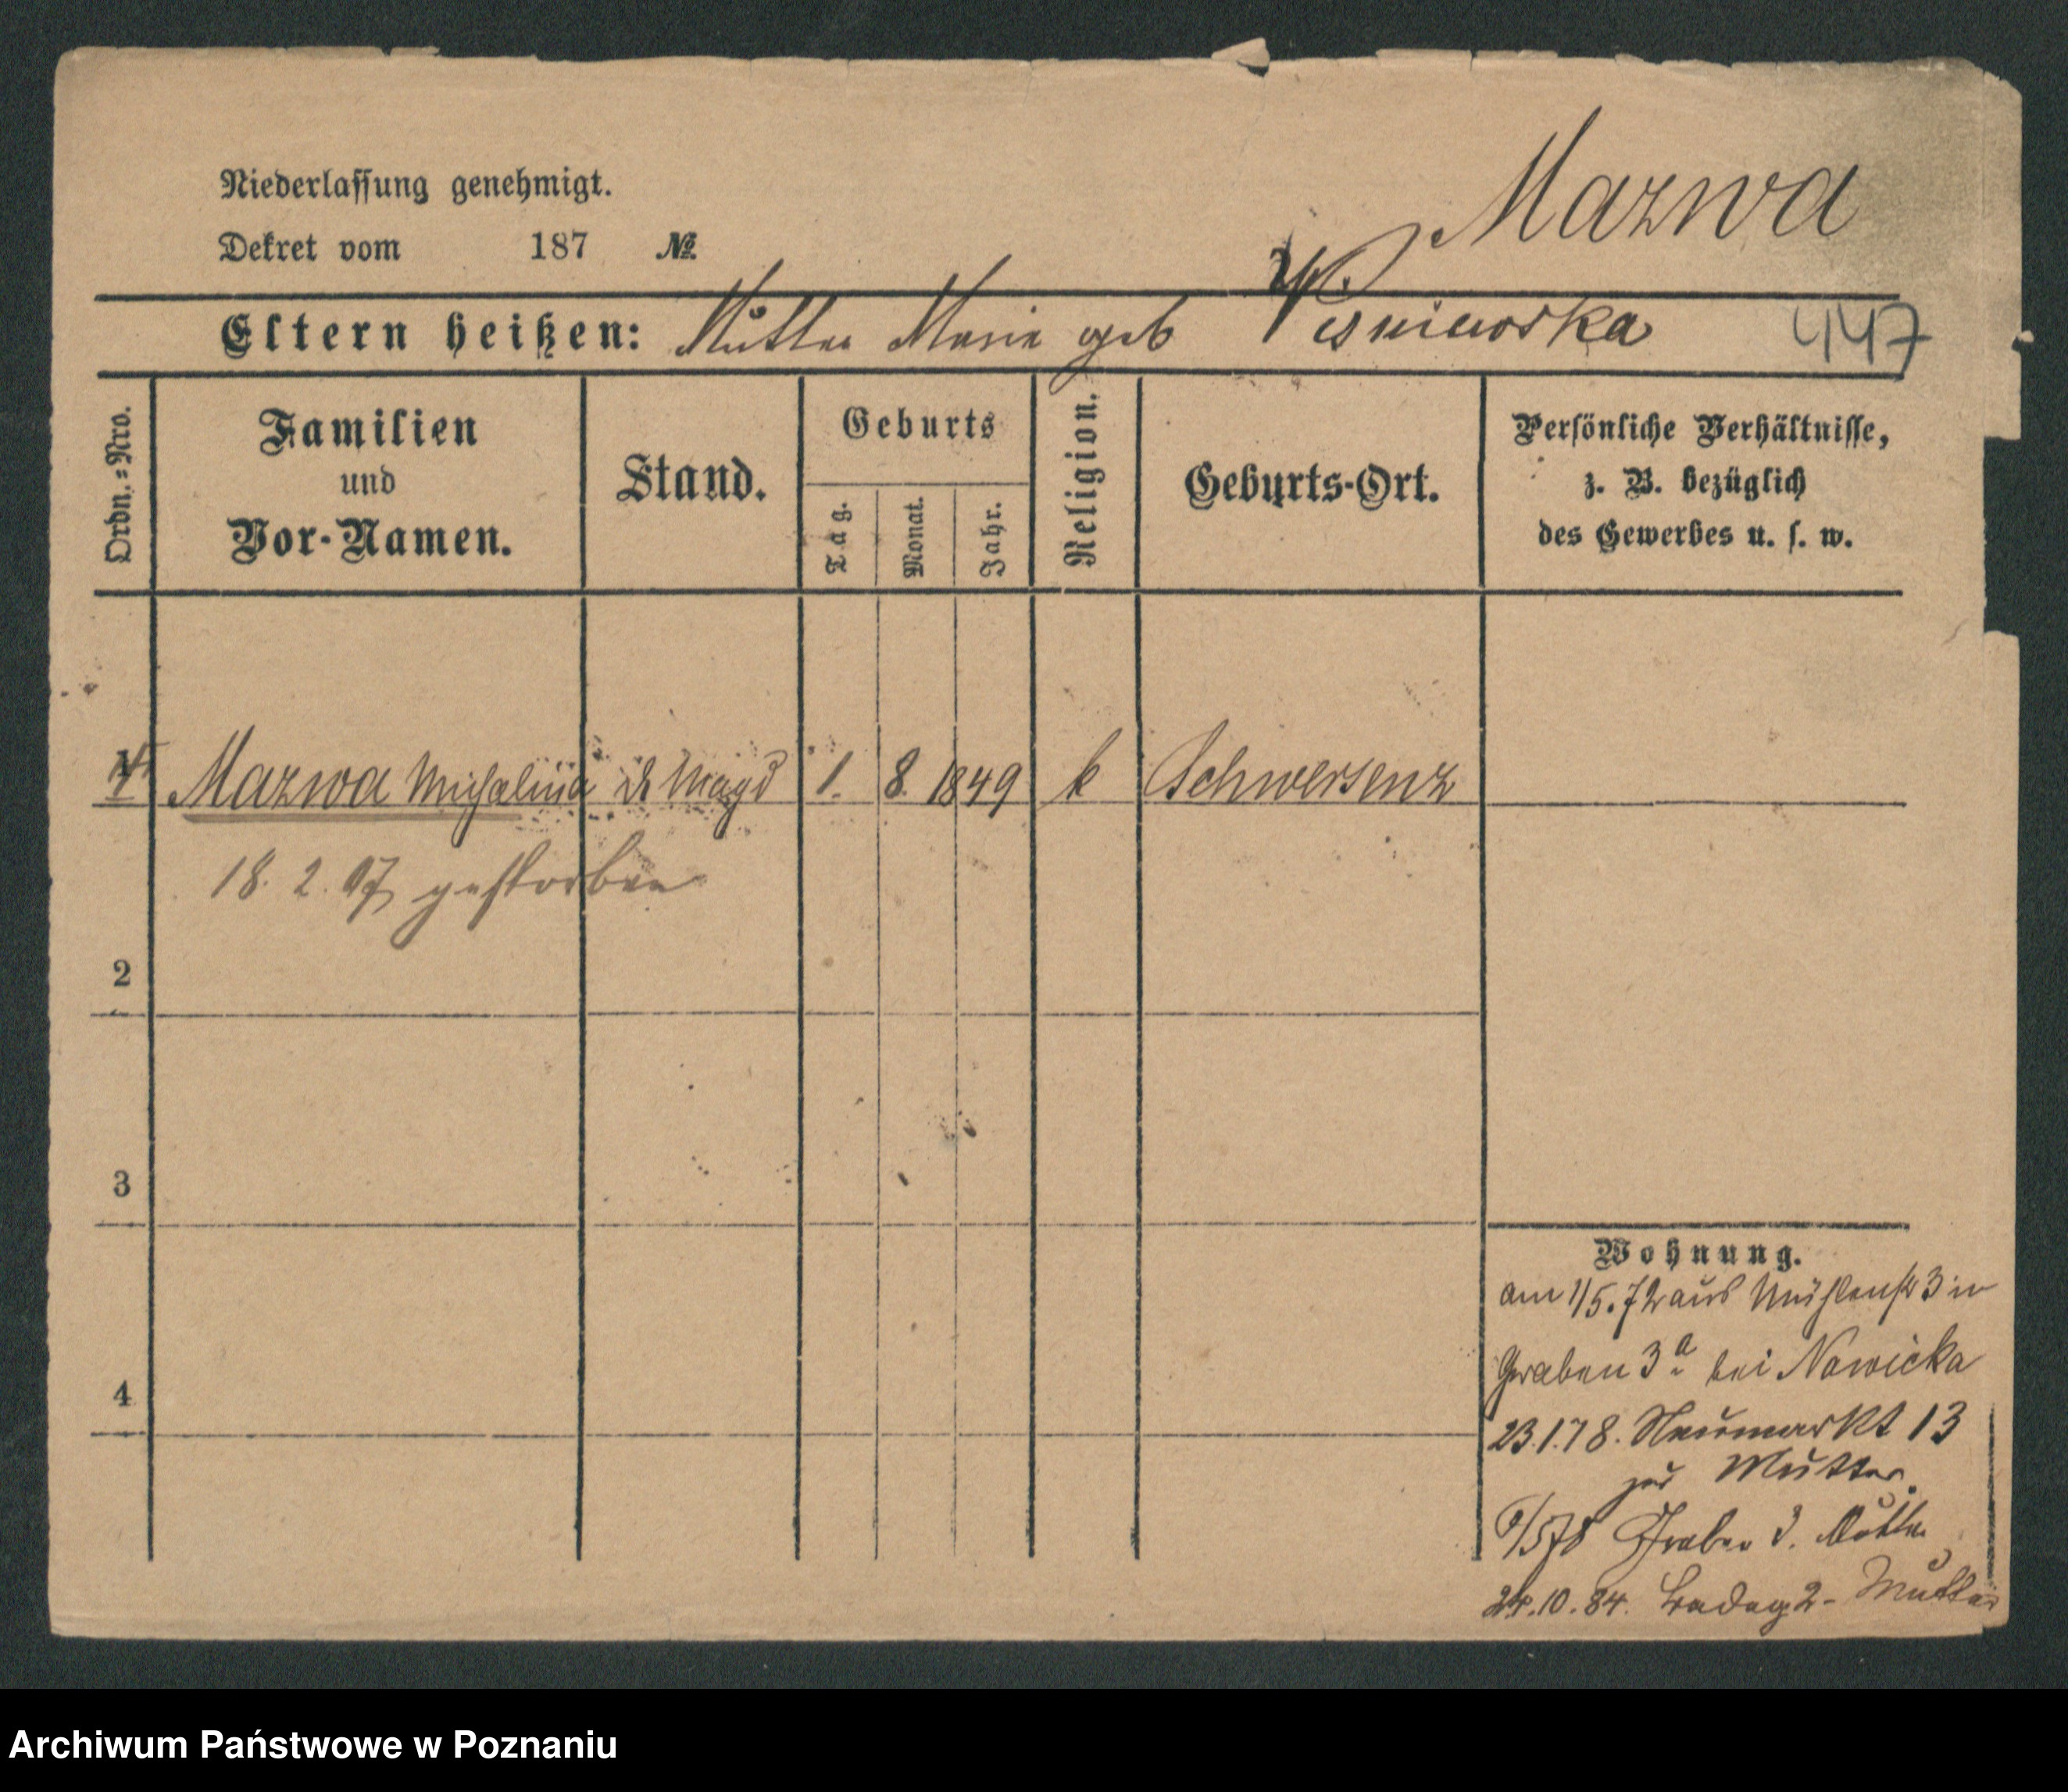 Niederlassung genehmigt.
Dekret vom 187 №
Mazwa
Eltern heißen: Mutter Marie geb Wisniewska
447
Ordn.=Nro.
Familien
und
Vor-Namen.
Stand.
Geburts
Tag.
Monat.
Jahr.
Religion.
Geburts-Ort.
Persönliche Verhältnisse,
z. B. bezüglich
des Gewerbes u. s. w.
1 Mazwa Michalina Magd 1. 8. 1849 k Schwersenz
18. 2. 07 gestorben
2
3
4
Wohnung.
am 1/5.72 aus Mühlenstr 3 in
Graben 3a bei Nowicka
23.1.78. Neumarkt 13
zur Mutter.
Graben 3. Mutter
24.10.84. Mutter
Archiwum Państwowe w Poznaniu